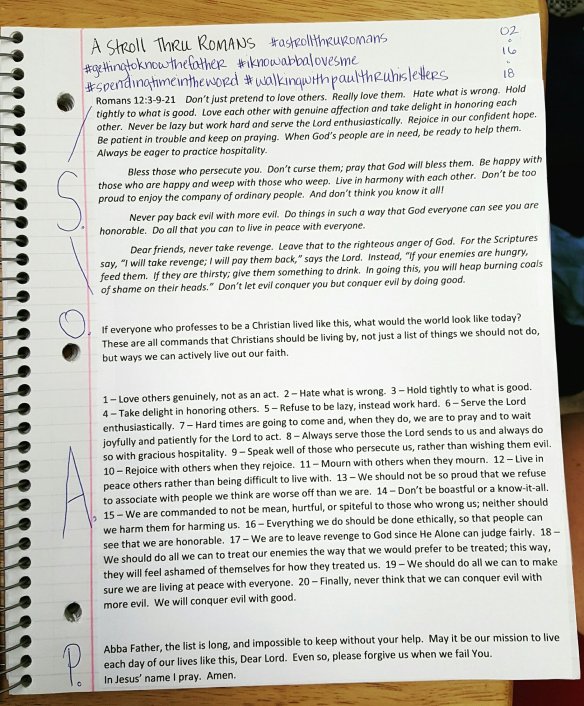 A STROLL THRU ROMANS #astrollthruromans
#gettingtoknowthefather #iknowabbalovesme
#spendingtimeintheword #walkingwithpaulthruhisletters
02
16
18
S.
Romans 12:3-9-21 Don't just pretend to love others. Really love them. Hate what is wrong. Hold
tightly to what is good. Love each other with genuine affection and take delight in honoring each
other. Never be lazy but work hard and serve the Lord enthusiastically. Rejoice in our confident hope.
Be patient in trouble and keep on praying. When God's people are in need, be ready to help them.
Always be eager to practice hospitality.
Bless those who persecute you. Don't curse them; pray that God will bless them. Be happy with
those who are happy and weep with those who weep. Live in harmony with each other. Don't be too
proud to enjoy the company of ordinary people. And don't think you know it all!
Never pay back evil with more evil. Do things in such a way that God everyone can see you are
honorable. Do all that you can to live in peace with everyone.
Dear friends, never take revenge. Leave that to the righteous anger of God. For the Scriptures
say, "I will take revenge; I will pay them back," says the Lord. Instead, "If your enemies are hungry,
feed them. If they are thirsty; give them something to drink. In going this, you will heap burning coals
of shame on their heads." Don't let evil conquer you but conquer evil by doing good.
O.
If everyone who professes to be a Christian lived like this, what would the world look like today?
These are all commands that Christians should be living by, not just a list of things we should not do,
but ways we can actively live out our faith.
A.
1 – Love others genuinely, not as an act. 2 – Hate what is wrong. 3 – Hold tightly to what is good.
4 – Take delight in honoring others. 5 – Refuse to be lazy, instead work hard. 6 – Serve the Lord
enthusiastically. 7 – Hard times are going to come and, when they do, we are to pray and to wait
joyfully and patiently for the Lord to act. 8 – Always serve those the Lord sends to us and always do
so with gracious hospitality. 9 – Speak well of those who persecute us, rather than wishing them evil.
10 – Rejoice with others when they rejoice. 11 – Mourn with others when they mourn. 12 – Live in
peace others rather than being difficult to live with. 13 – We should not be so proud that we refuse
to associate with people we think are worse off than we are. 14 – Don't be boastful or a know-it-all.
15 – We are commanded to not be mean, hurtful, or spiteful to those who wrong us; neither should
we harm them for harming us. 16 – Everything we do should be done ethically, so that people can
see that we are honorable. 17 – We are to leave revenge to God since He Alone can judge fairly. 18 –
We should do all we can to treat our enemies the way that we would prefer to be treated; this way,
they will feel ashamed of themselves for how they treated us. 19 – We should do all we can to make
sure we are living at peace with everyone. 20 – Finally, never think that we can conquer evil with
more evil. We will conquer evil with good.
P.
Abba Father, the list is long, and impossible to keep without your help. May it be our mission to live
each day of our lives like this, Dear Lord. Even so, please forgive us when we fail You.
In Jesus' name I pray. Amen.